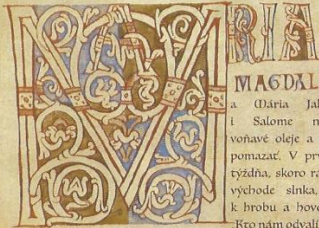 MRIA
MAGDAL
a Mária Jak
i Salome n
voňavé oleje a
pomazať. V prv
týždňa, skoro ra
východe slnka,
k hrobu a hovo
Kto nám odvalí